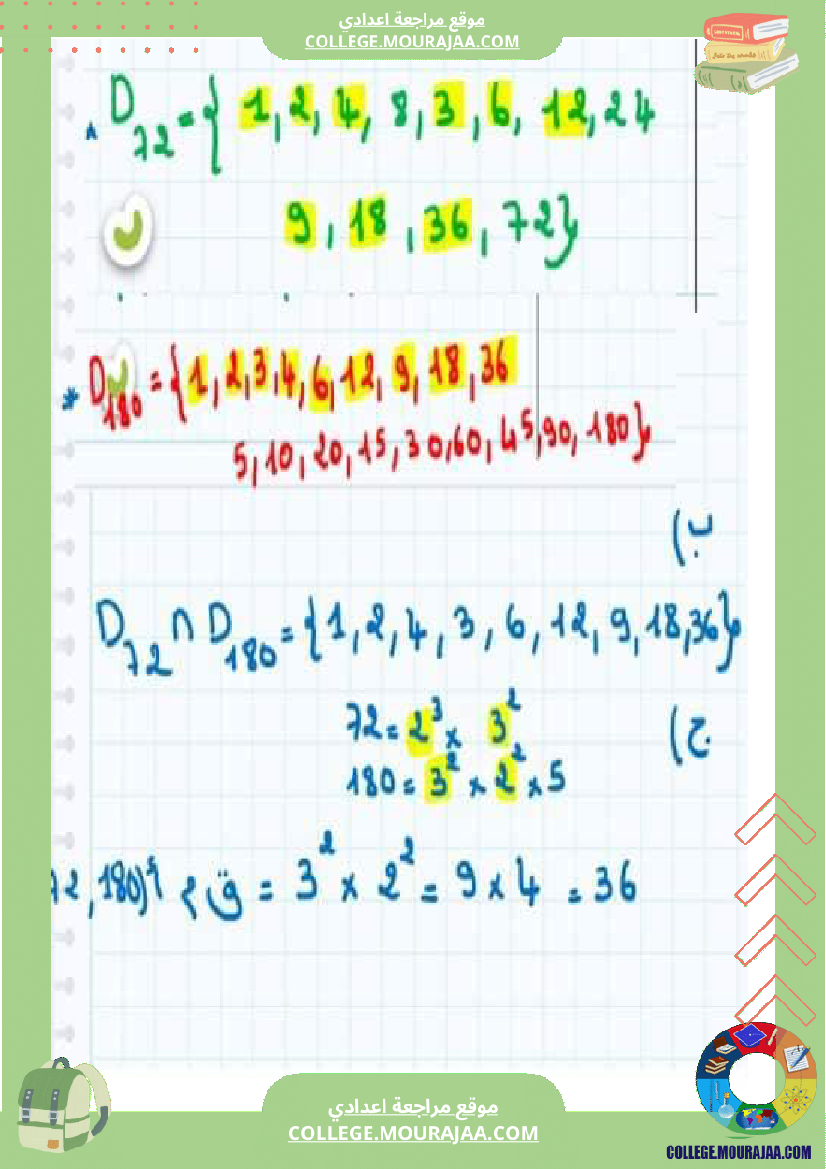 موقع مراجعة اعدادي
COLLEGE.MOURAJAA.COM
D₇₂ = { 1, 2, 4, 8, 3, 6, 12, 24
9, 18, 36, 72}
* D₁₈₀ = { 1, 2, 3, 4, 6, 12, 9, 18, 36
5, 10, 20, 15, 30, 60, 45, 90, 180}
ب)
D₇₂ ∩ D₁₈₀ = { 1, 2, 4, 3, 6, 12, 9, 18, 36}
ج)
72 = 2³ × 3²
180 = 3² × 2² × 5
2, 180) = 3² × 2² = 9 × 4 = 36
موقع مراجعة اعدادي
COLLEGE.MOURAJAA.COM
COLLEGE.MOURAJAA.COM